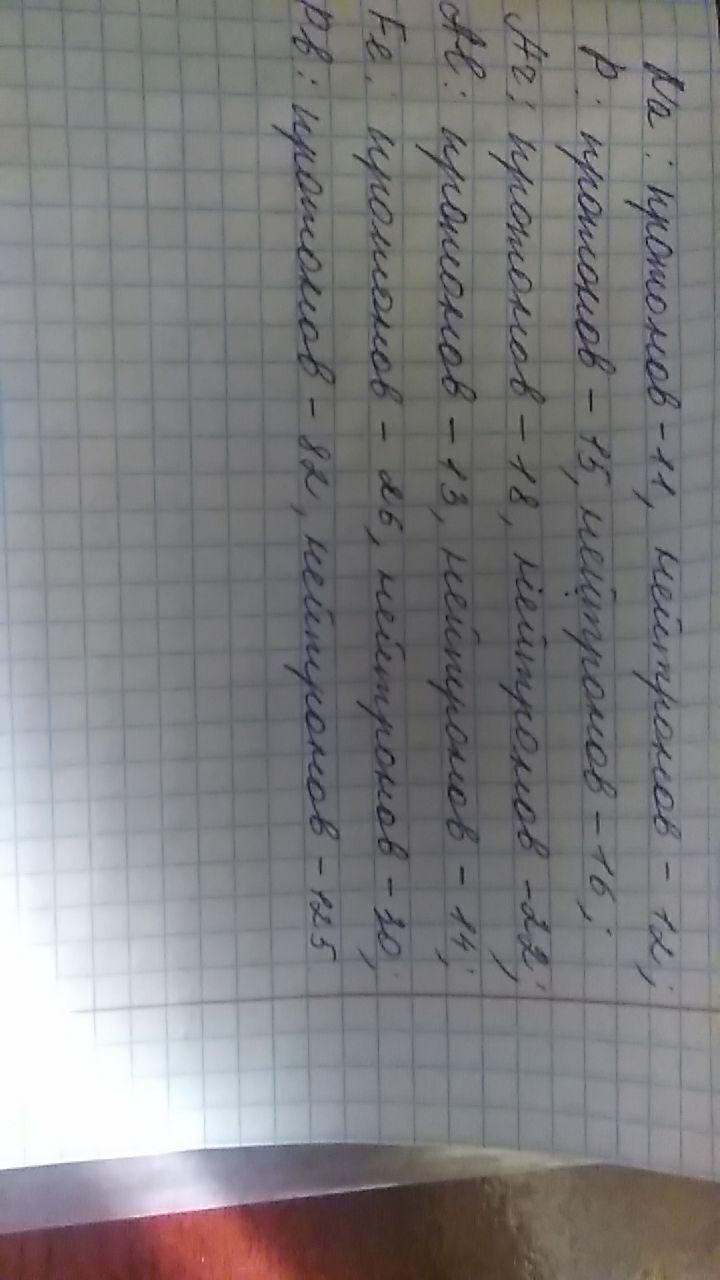 Na: протонов - 11, нейтронов - 12;
P: протонов - 15, нейтронов - 16;
Ar: протонов - 18, нейтронов - 22;
Al: протонов - 13, нейтронов - 14;
Fe: протонов - 26, нейтронов - 30;
Pb: протонов - 82, нейтронов - 125